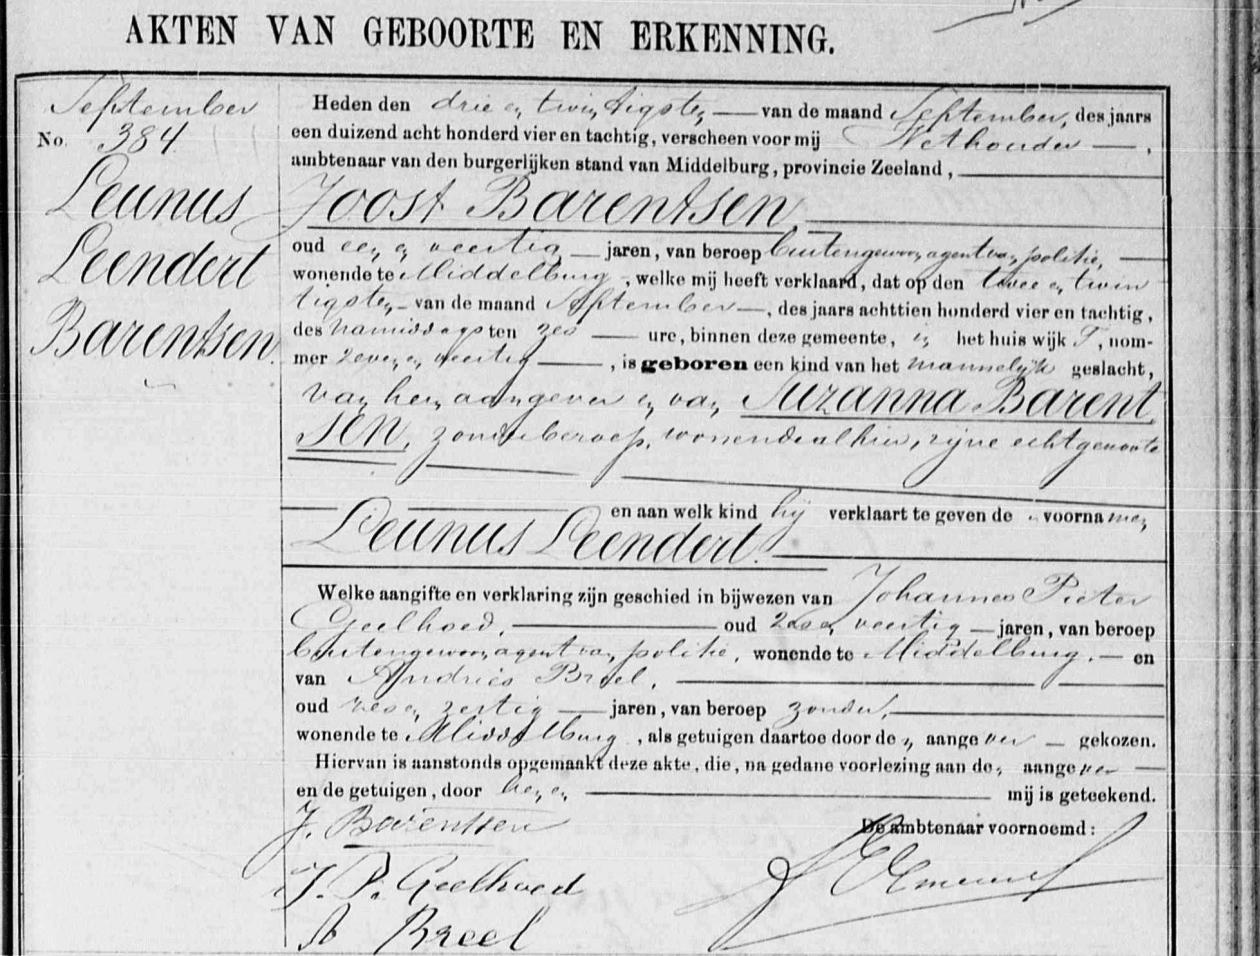 AKTEN VAN GEBOORTE EN ERKENNING.
September
No. 384
Leunus
Leendert
Barentsen.
Heden den drie en twintigsten van de maand September, des jaars
een duizend acht honderd vier en tachtig, verscheen voor mij Wethouder,
ambtenaar van den burgerlijken stand van Middelburg, provincie Zeeland,
Joost Barentsen
oud een en veertig jaren, van beroep buitengewoon agent van politie,
wonende te Middelburg, welke mij heeft verklaard, dat op den twee en twin
tigsten van de maand September, des jaars achttien honderd vier en tachtig,
des namiddags ten zes ure, binnen deze gemeente, in het huis wijk F, nom-
mer zeven en veertig, is geboren een kind van het mannelijk geslacht,
van hem aangever en van Suzanna Barent
sen, zonder beroep, wonende alhier, zijne echtgenoote
en aan welk kind hij verklaart te geven de voornamen
Leunus Leendert.
Welke aangifte en verklaring zijn geschied in bijwezen van Johannes Pieter
Geelhoed, oud zes en veertig jaren, van beroep
buitengewoon agent van politie, wonende te Middelburg, en
van Andries Breel,
oud zes en zestig jaren, van beroep zonder,
wonende te Middelburg, als getuigen daartoe door den aangever gekozen.
Hiervan is aanstonds opgemaakt deze akte, die, na gedane voorlezing aan den aangever
en de getuigen, door hen en mij is geteekend.
J. Barentsen
De ambtenaar voornoemd:
J. P. Geelhoed
A Breel